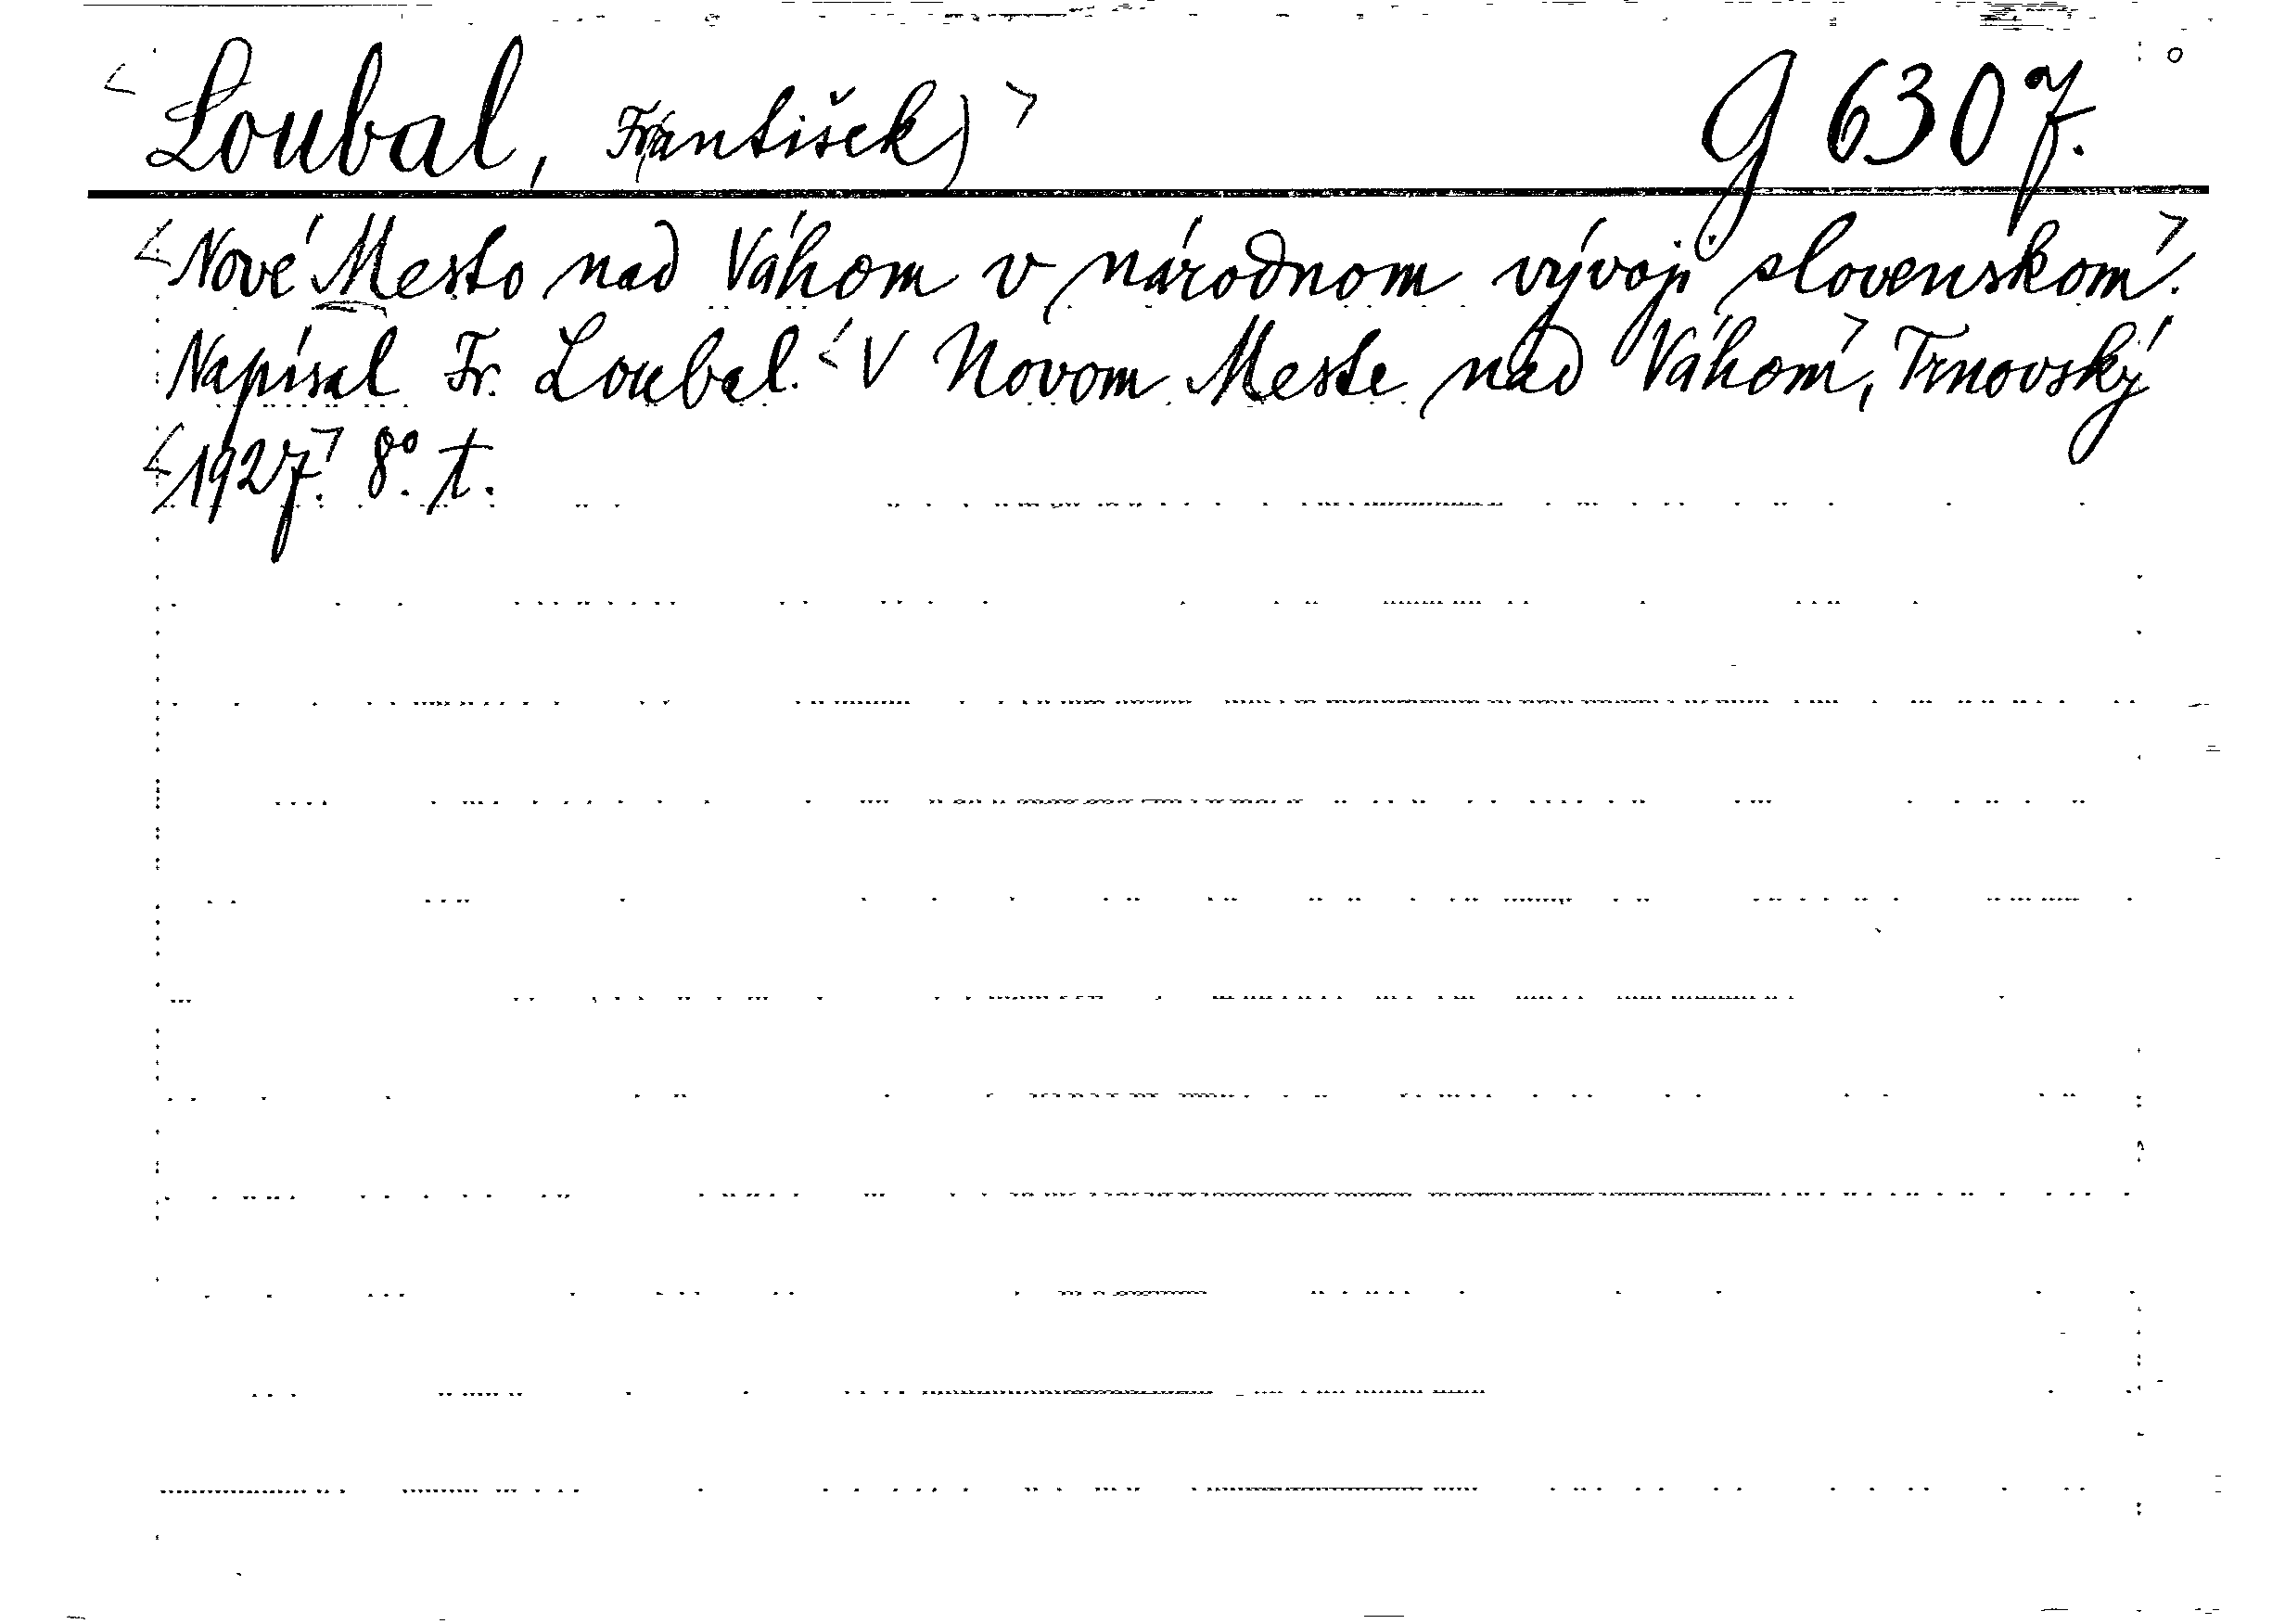 <Loubal, František)> G 6307.
<Nové Mesto nad Váhom v národnom vývoji slovenskom>.
Napísal Fr. Loubal. <V Novom Meste nad Váhom>, Trnovský
<1927.> 8°. t.